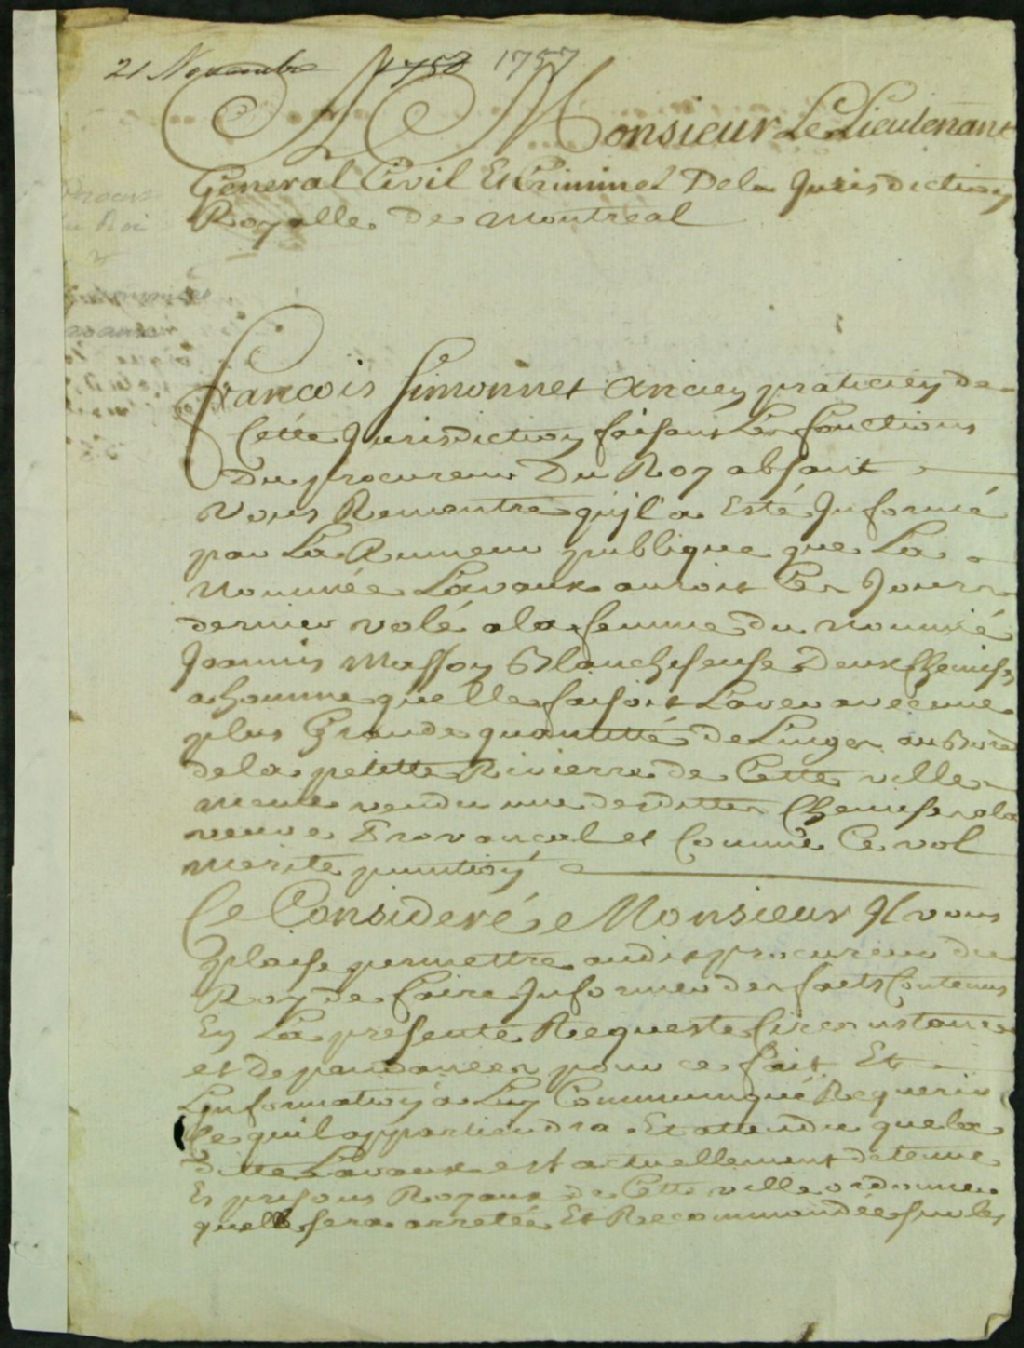 21 Novembre 1758 1757
A Monsieur Le Lieutenant
General Civil Et Criminel De la Jurisdiction
Royalle de Montreal
Procur
du Roi
François Simonnet ancien praticien de
Cette Jurisdiction faisant Les fonctions
Du procureur Du Roy absant
Vous Remontre qu'jl a Esté Jnformé
par La Rumeur publique que La
nommée Lavaux auroit Ces Jours
dernier volé a la femme du nommé
Joannis Masson Blanchiseuse Deux Chemises
a homme quelle faisoit Laver avec une
plus Grande quantitté de Linges au Bord
de la petitte Rivierre de Cette ville
mesme vendu une desdittes Chemises a la
veuve Provancal et Comme Ce vol
merite punition
Ce Consideré Monsieur Jl vous
plaise permettre audit procureur du
Roy de faire Jnformer des faits Contenus
En La presente Requeste Circonstances
et Depandances pour ce fait Et
Linformation a Luy Communiqué Requerir
Ce quil appartiendra Et attendu que la
ditte Lavaux est actuellement detenue
Es prisons Royaux de Cette ville ordonner
quelle sera arretée Et Recommandée sur les